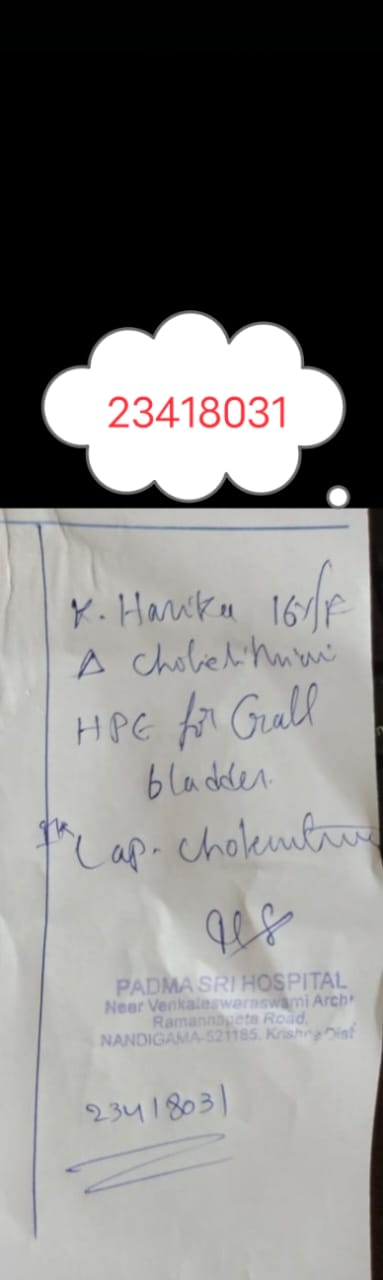 23418031
K. Harika 16y/F
Δ Cholelithiasis
HPE for Gall
bladder.
Lap. Cholecystec
PADMA SRI HOSPITAL
Near Venkateswaraswami Arch,
Ramannapeta Road,
NANDIGAMA-521185. Krishna Dist
23418031